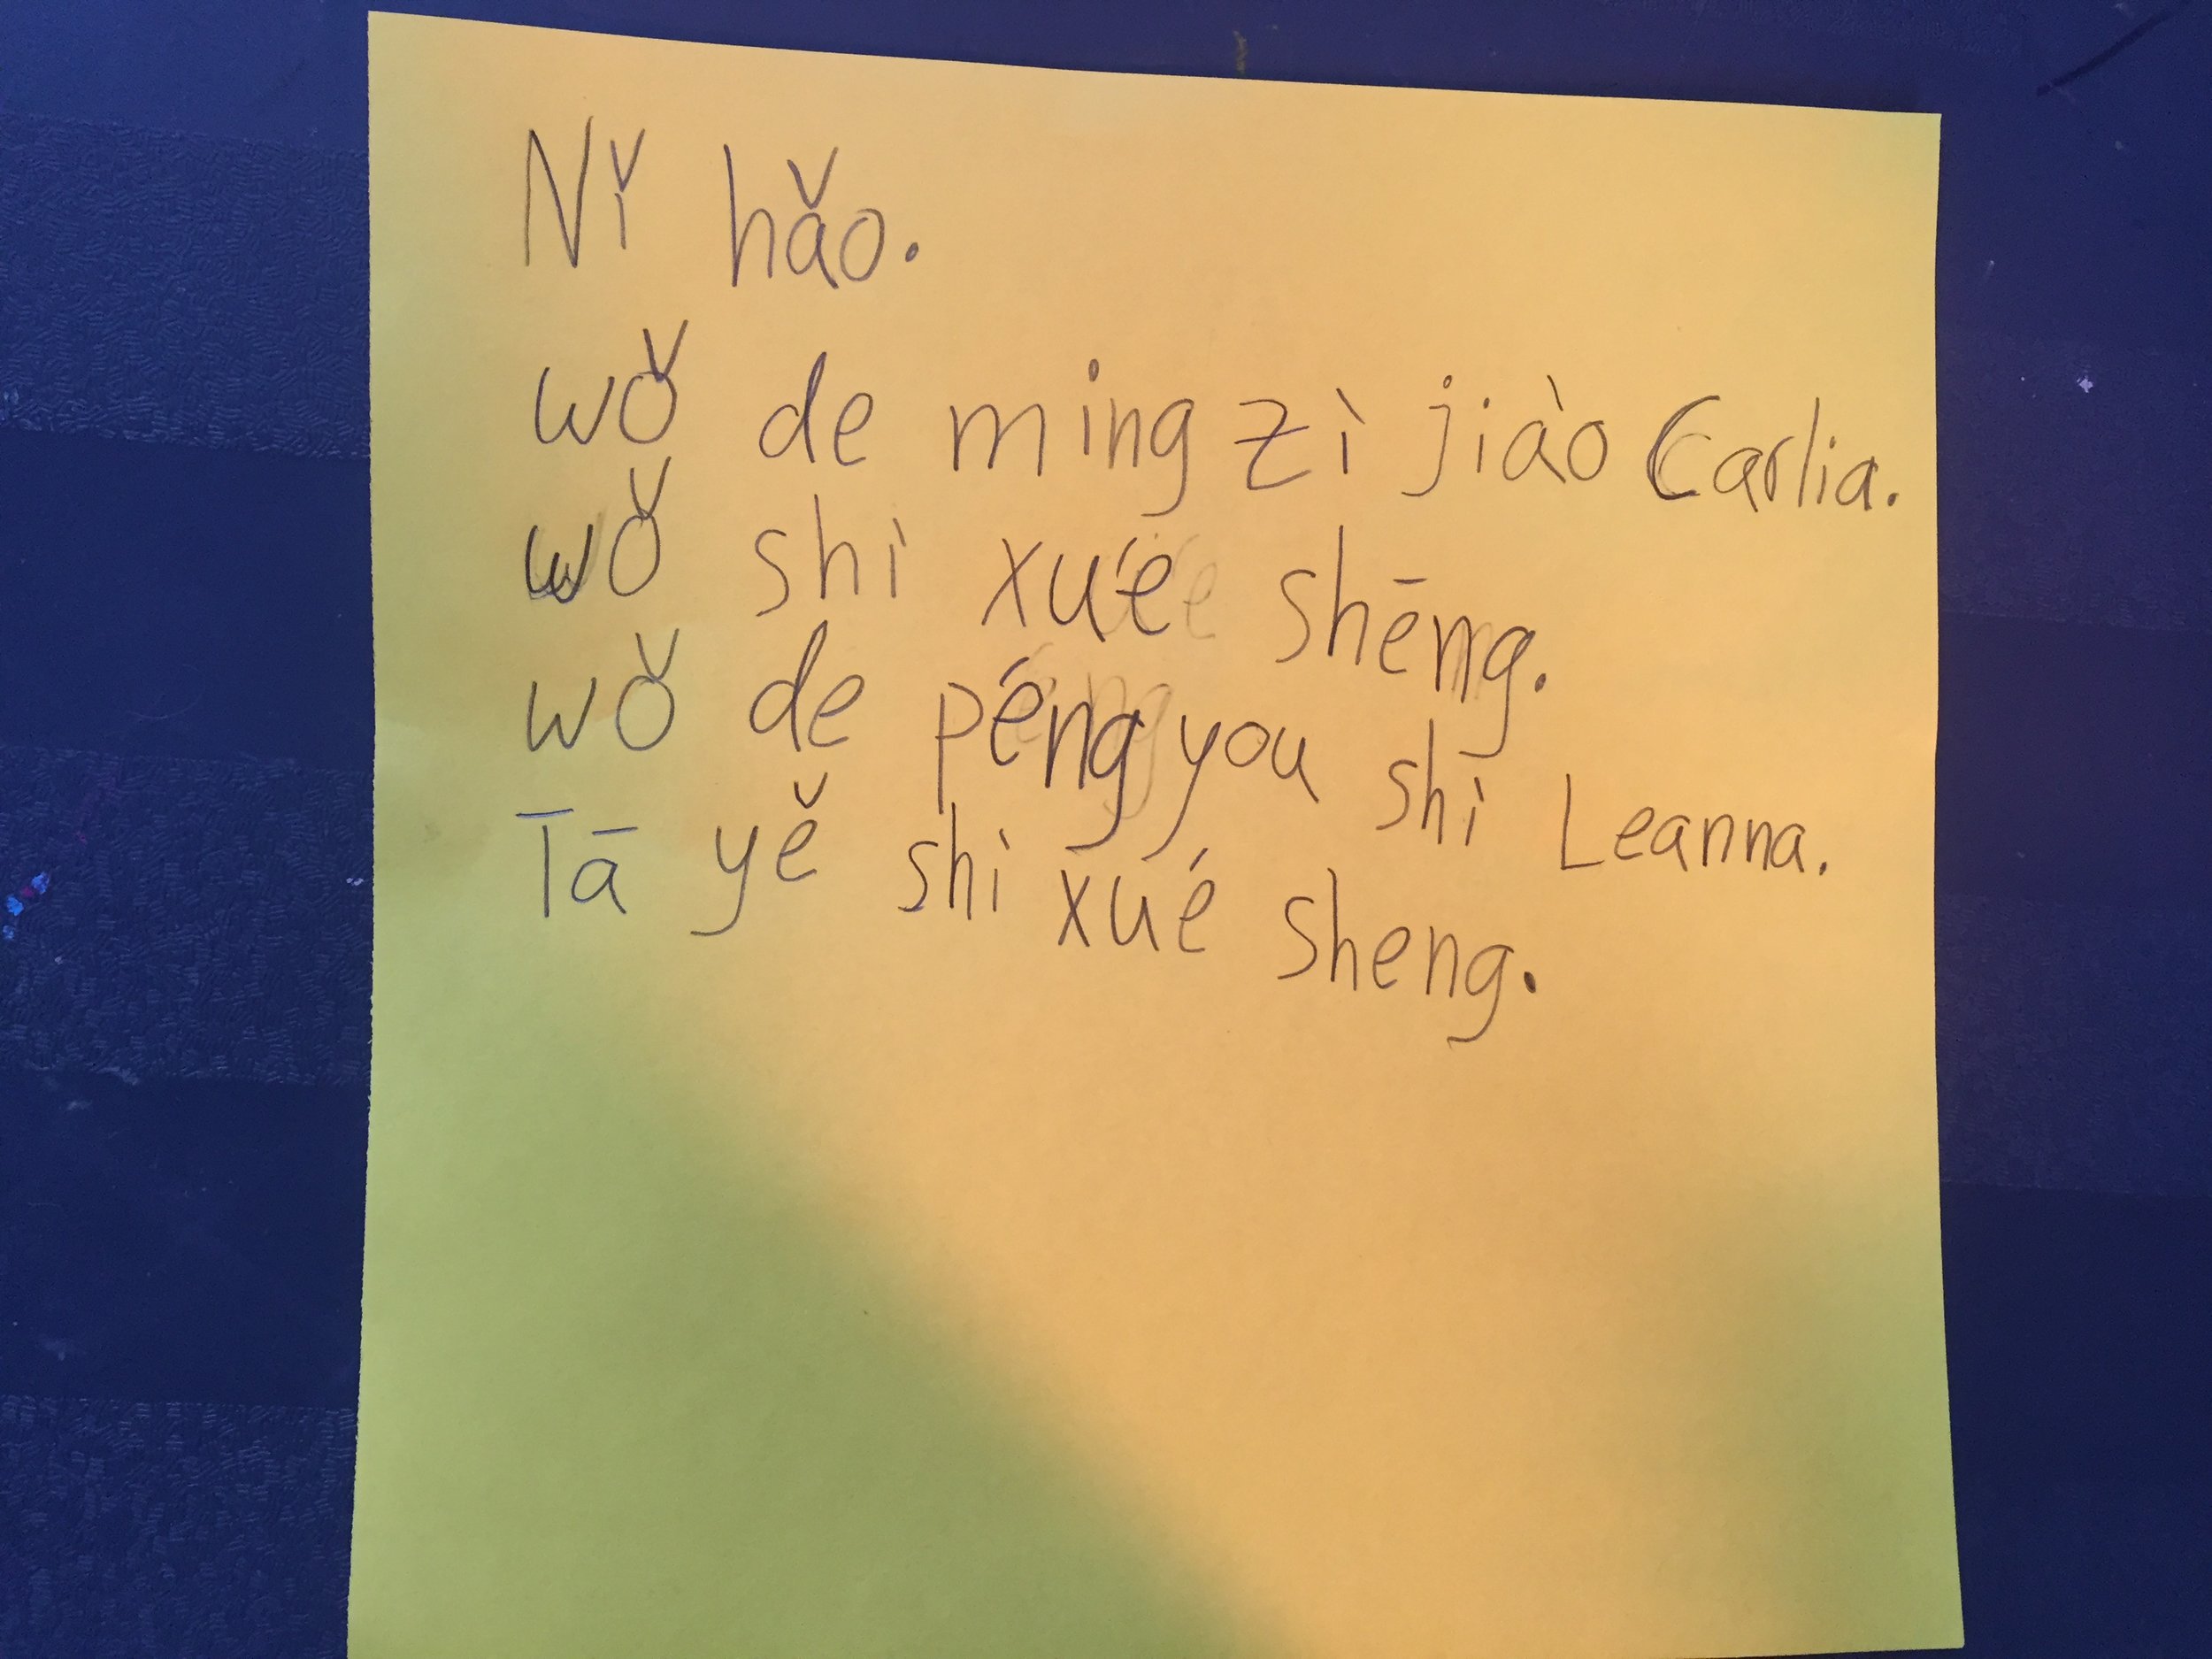 Nǐ hǎo.
wǒ de ming zì jiào Carlia.
wǒ shì xué shēng.
wǒ de péng you shì Leanna.
Tā yě shì xué sheng.